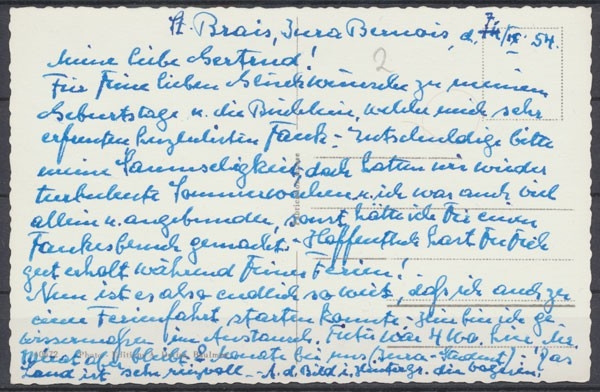 St. Brais, Jura Bernois, d. 7./IX. 54.
2
Meine liebe Gertrud!
Für Deine lieben Glückwünsche zu meinem
Geburtstage u. die Büchlein, welche mich sehr
erfreuten herzlichsten Dank – Entschuldige bitte
meine Saumseligkeit, doch hatten wir wieder
turbulente Sommerwochen u. ich war auch viel
allein u. angebunden, sonst hätte ich Dir einen
Dankesbesuch gemacht. – Hoffentlich hast Du Dich
gut erholt während Deiner Ferien!
Nun ist es also endlich so weit, daß ich auch zu
einer Ferienfahrt starten konnte – hier bin ich ge-
wissermaßen im Austausch. war 4 Wo. hier, die
8 Monate bei uns (Jura-Student). Das
Land ist sehr reizvoll. – A. d. Bild i. Hintergr. die Vogesen.